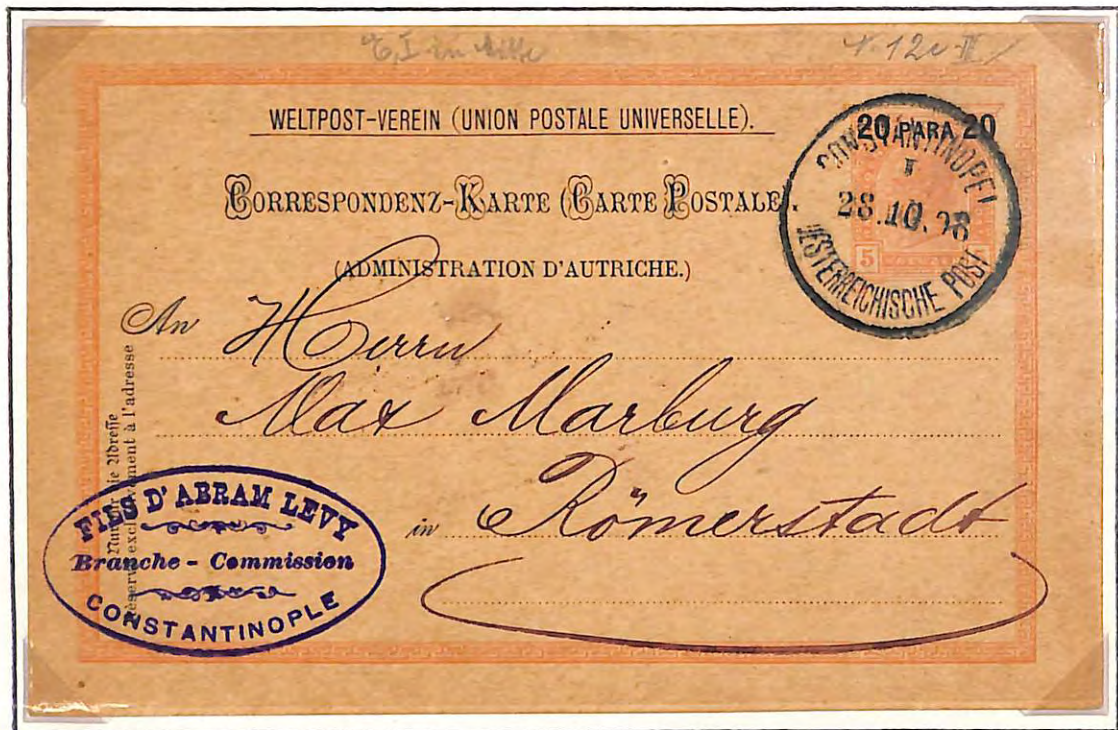 in
12c II
WELTPOST-VEREIN (UNION POSTALE UNIVERSELLE).
20 PARA 20
CORRESPONDENZ-KARTE (CARTE POSTALE).
(ADMINISTRATION D'AUTRICHE.)
CONSTANTINOPEL
I
28.10.98
OESTERREICHISCHE POST
5
An Herrn
Max Marburg
in Römerstadt
Nur für die Adresse
Réservé exclusivement à l'adresse
FILS D'ABRAM LEVY
Branche - Commission
CONSTANTINOPLE